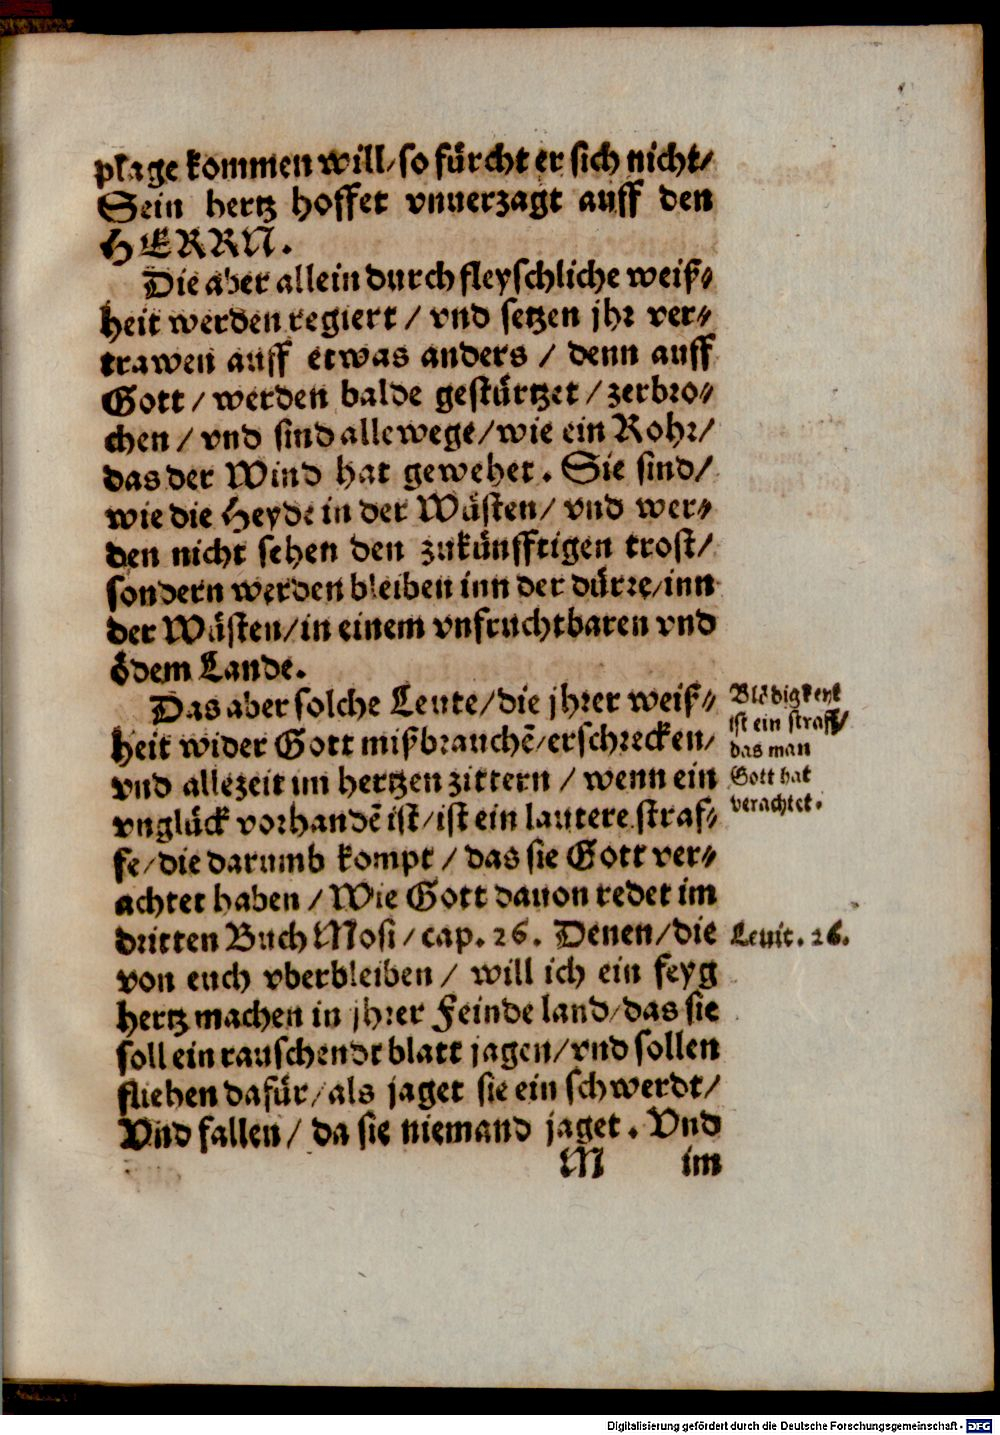 plage kommen will/so fürcht er sich nicht/
Sein hertz hoffet vnuerzagt auff den
HERRN.
Die aber allein durch fleyschliche weiß-
heit werden regiert / vnd setzen jhr ver-
trawen auff etwas anders / denn auff
Gott / werden balde gestürtzet / zerbro-
chen / vnd sind allewege/wie ein Rohr/
das der Wind hat gewehet. Sie sind/
wie die Heyde in der Wüsten/ vnd wer-
den nicht sehen den zukünfftigen trost/
sondern werden bleiben inn der dürre/inn
der Wüsten/in einem vnfruchtbaren vnd
ödem Lande.
Das aber solche Leute/die jhrer weiß-
heit wider Gott mißbrauchē/erschrecken/
vnd allezeit im hertzen zittern / wenn ein
vnglück vorhandē ist/ist ein lautere straf-
fe/die darumb kompt / das sie Gott ver-
achtet haben / Wie Gott dauon redet im
dritten Buch Mosi / cap. 26. Denen/die
von euch vberbleiben / will ich ein feyg
hertz machen in jhrer Feinde land/das sie
soll ein rauschendt blatt jagen/vnd sollen
fliehen dafür/als jaget sie ein schwerdt/
Vnd fallen / da sie niemand jaget. Vnd
M im
Blödigkeyt
ist ein straff/
das man
Gott hat
verachtet.
Leuit. 26.
Digitalisierung gefördert durch die Deutsche Forschungsgemeinschaft - DFG